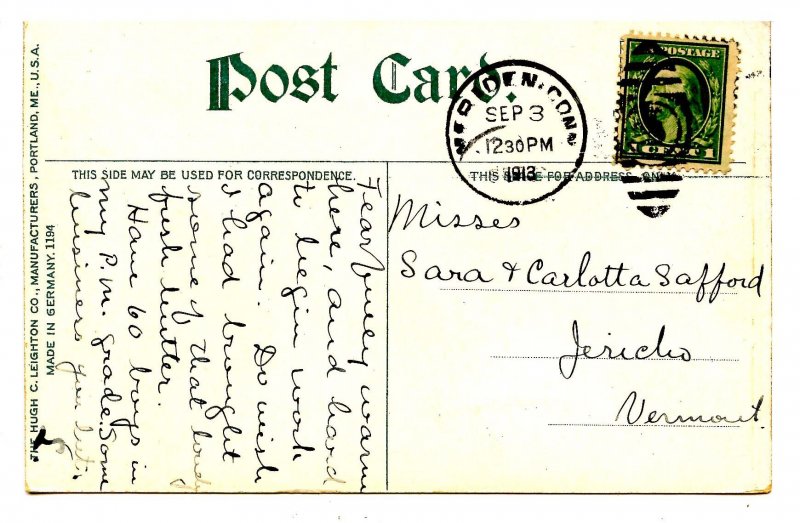 Post Card.
MERIDEN, CONN.
SEP 3
12 30 PM
1913
POSTAGE
THIS SIDE MAY BE USED FOR CORRESPONDENCE.
THIS SIDE FOR ADDRESS ONLY.
THE HUGH C. LEIGHTON CO., MANUFACTURERS, PORTLAND, ME., U.S.A.
MADE IN GERMANY. 1194
warm
here, and hard
to begin work
again. Do wish
I had brought
some of that lovely
fresh butter.
Have 60 boys in
my P.M. grade. Some
business
Misses
Sara & Carlotta Safford
Jericho
Vermont.